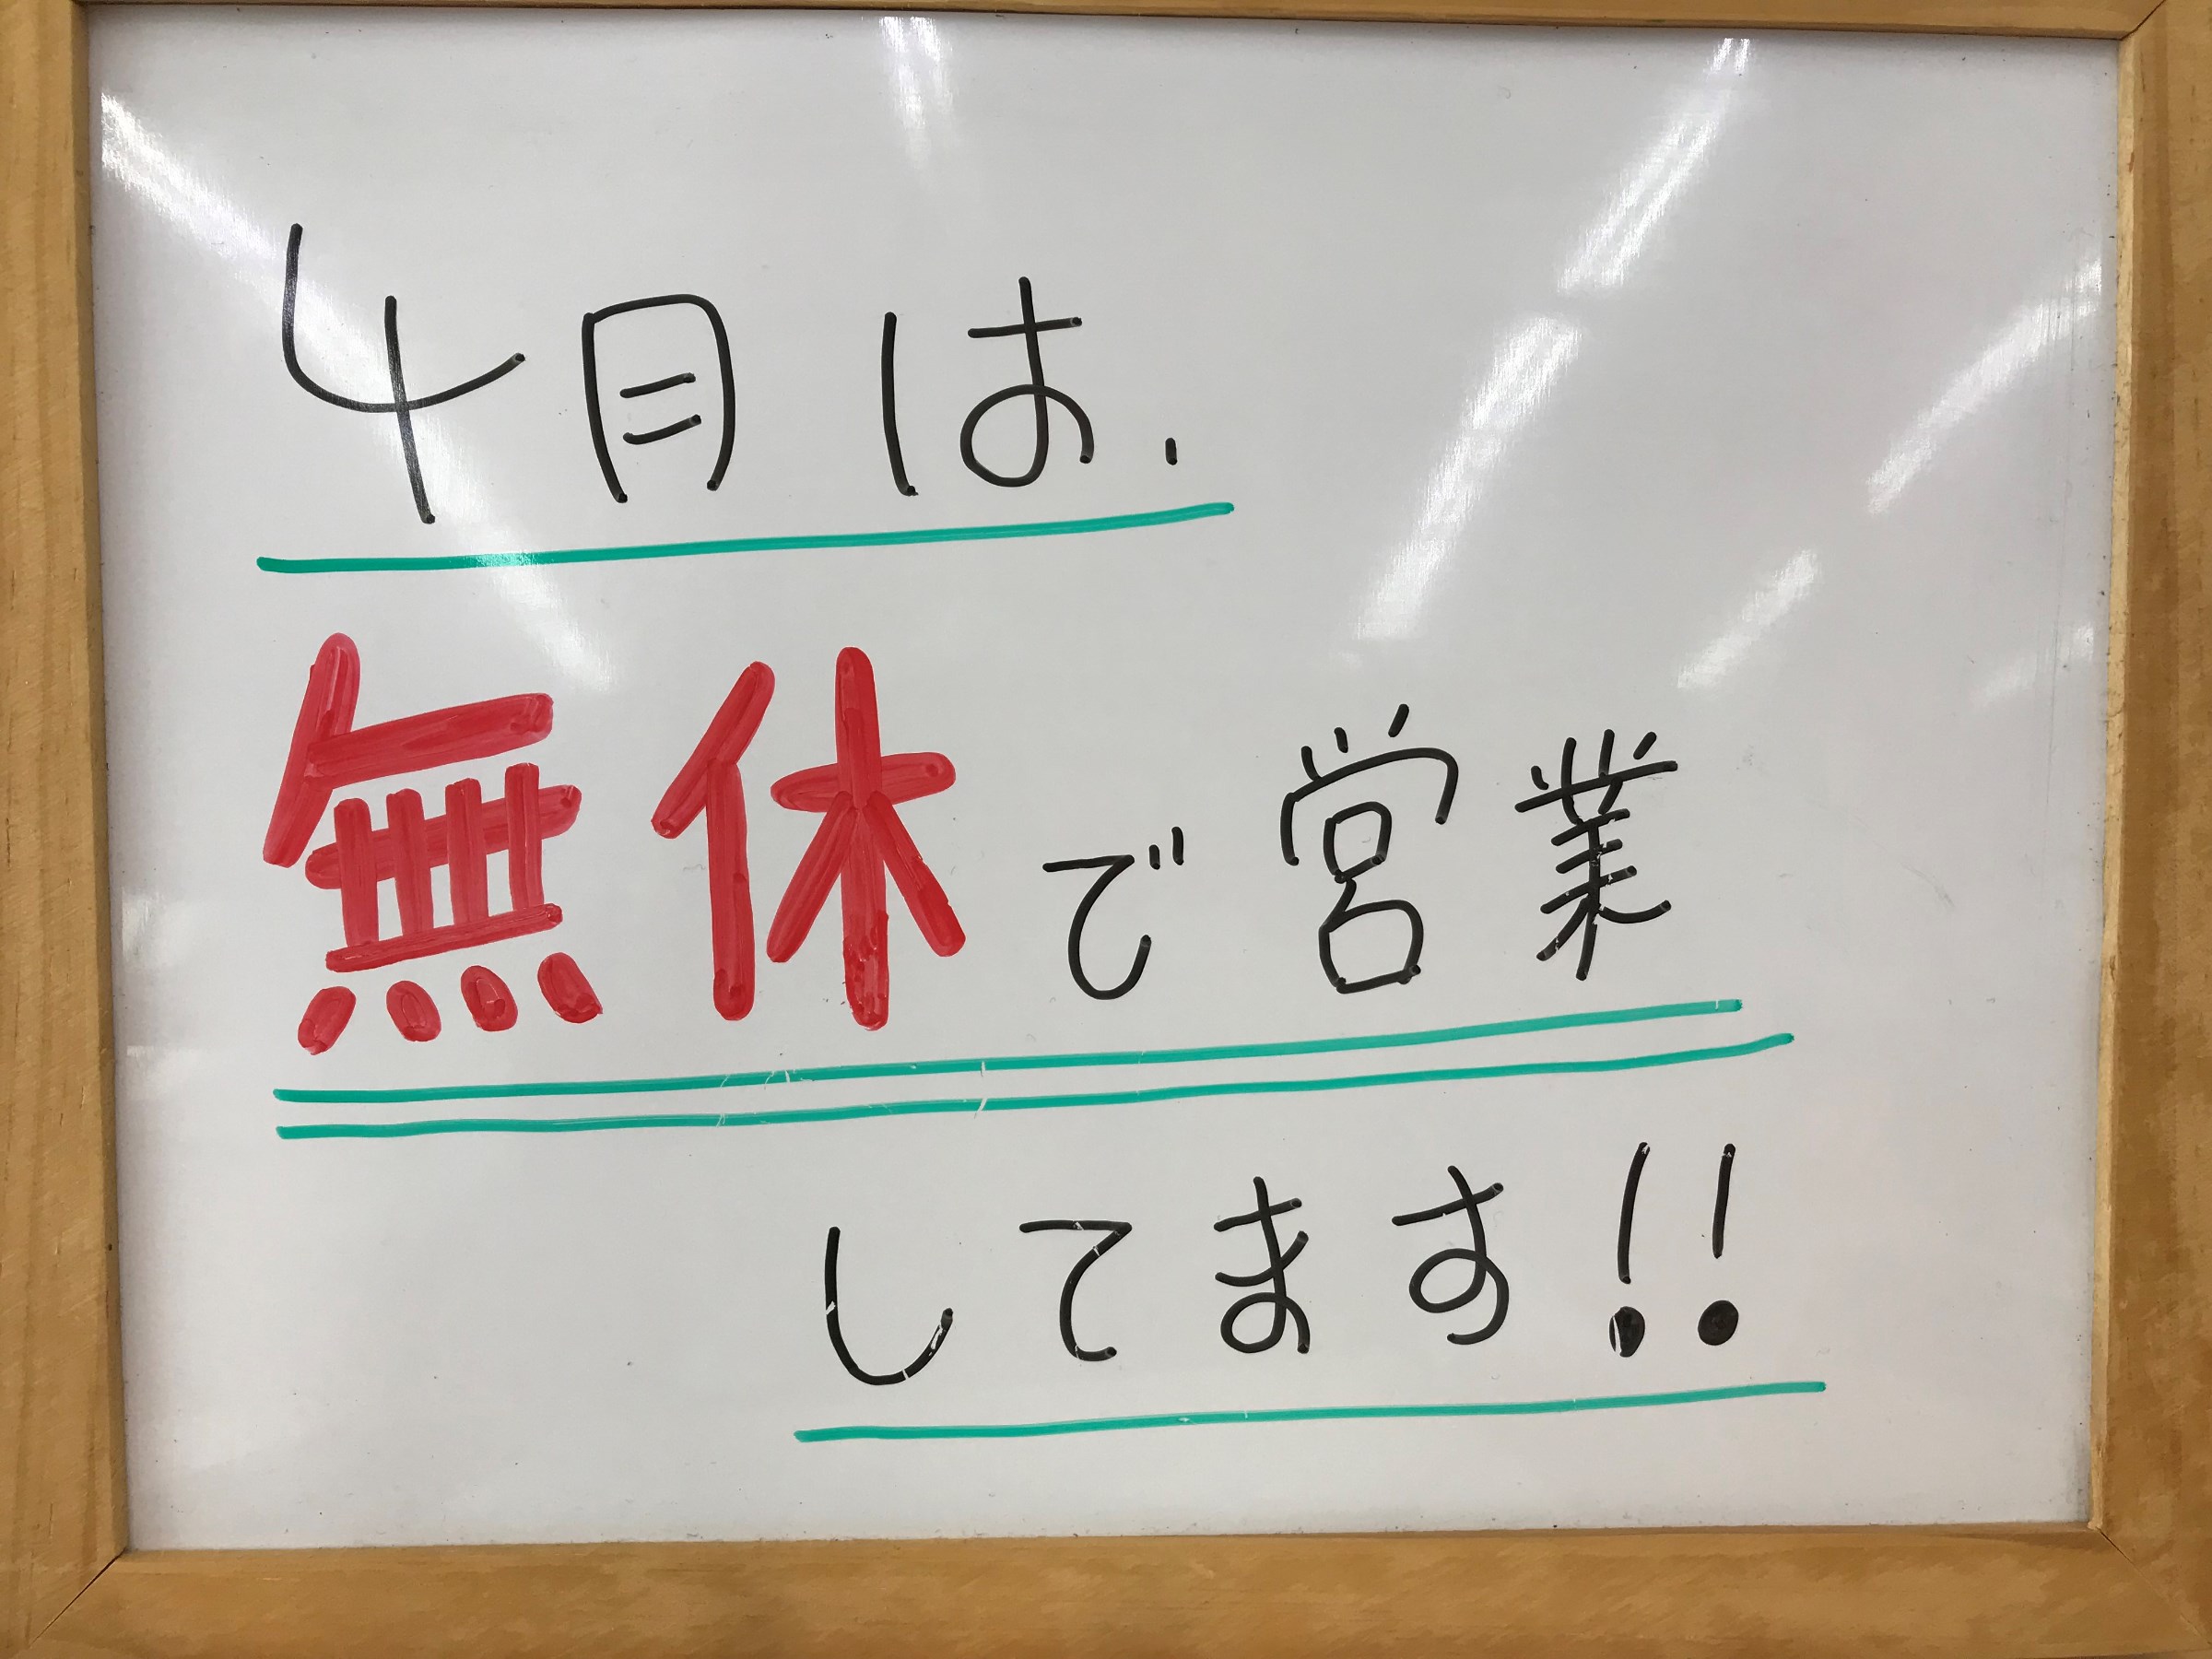 4月は、
無休で営業
してます!!